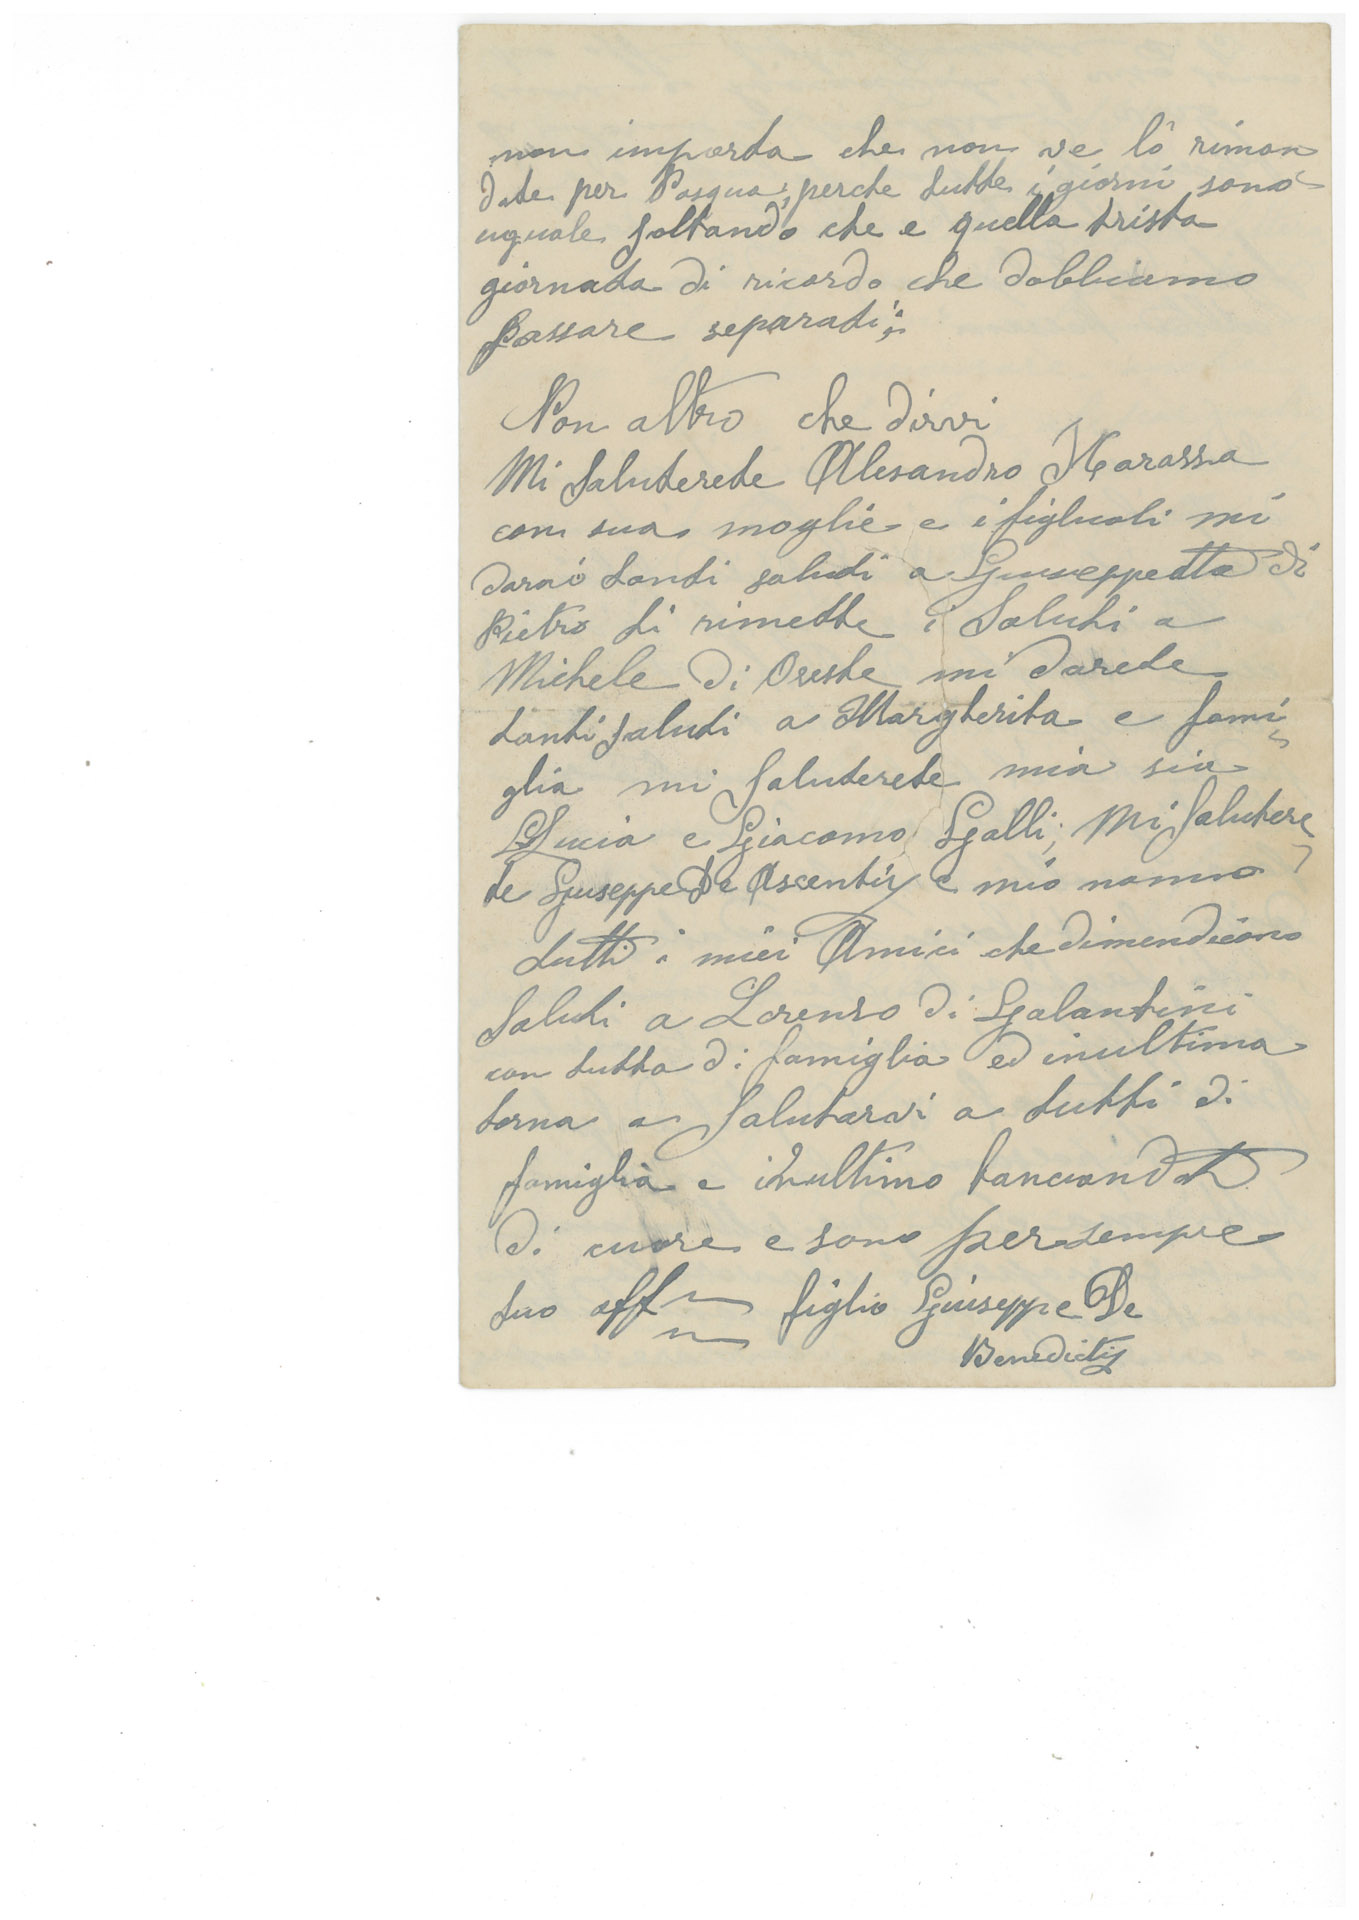 non imporda che non ve lò riman
date per Pasqua, perche tutte i giorni sono
uguale soltando che e quella trista
giornada di ricordo che dobbiamo
passare separadi;
Non altro che dirvi
Mi saluterede Alesandro Marassa
con sua moglie e i figluoli mi
darai dandi saludi a Giuseppetta di
Pietro ti rimette i saluti a
Michele di Oreste mi darede
tanti saludi a Margherita e fami
glia mi saluderede mia sia
Lucia e Giacomo Galli; Mi salutere
te Giuseppe De Ascentiis e mio nonno
dutti i miei Amici che dimendicono
saludi a Lorenso di Galantini
con tutta di famiglia ed inultima
torna a salutarvi a tutti di
famiglia e inultimo
di cuore e sono per sempre
tuo aff figlio Giuseppe De
Benedictis